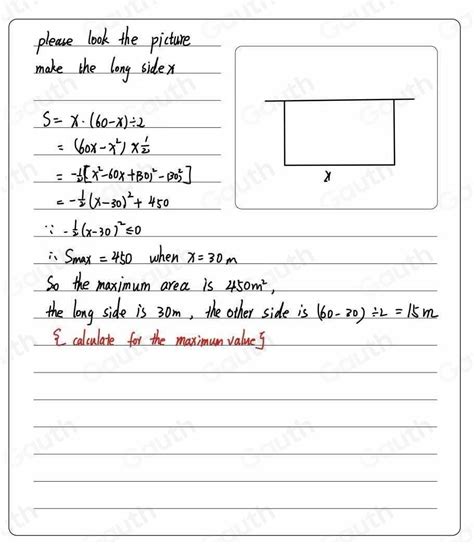 please look the picture
make the long side x
S = x·(60-x)÷2
= (60x-x²)×½
= -½[x²-60x+(30)²-(30)²]
= -½(x-30)²+450
∵ -½(x-30)²≤0
∴ Smax = 450 when x=30m
So the maximum area is 450m²,
the long side is 30m, the other side is (60-30)÷2=15m
{ calculate for the maximum value }
x
Gauth